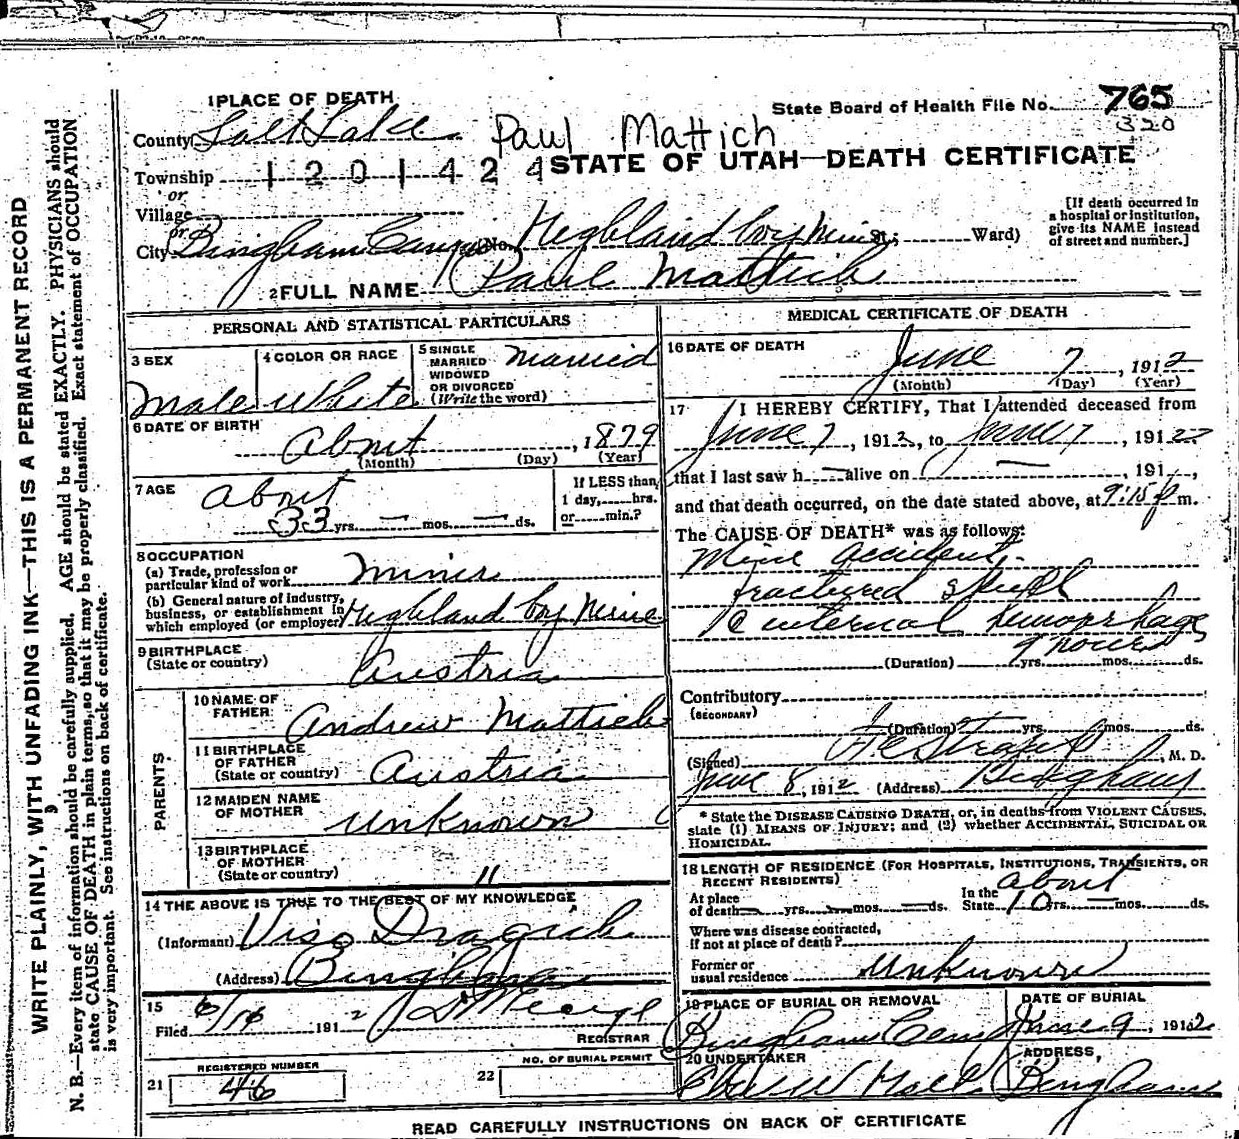 1 PLACE OF DEATH
State Board of Health File No. 765
320
County Salt Lake
Paul Mattich
Township 1201424
STATE OF UTAH—DEATH CERTIFICATE
or
Village
or
City Bingham Canyon (No. Highland Boy Mine St.; Ward)
[If death occurred in a hospital or institution, give its NAME instead of street and number.]
2 FULL NAME Paul Mattich
PERSONAL AND STATISTICAL PARTICULARS
3 SEX
Male
4 COLOR OR RACE
White
5 SINGLE MARRIED WIDOWED OR DIVORCED (Write the word)
Married
6 DATE OF BIRTH
About , 1879
(Month) (Day) (Year)
7 AGE
about
33 yrs. — mos. — ds.
If LESS than 1 day, hrs. or min.?
8 OCCUPATION
(a) Trade, profession or particular kind of work Miner
(b) General nature of industry, business, or establishment in which employed (or employer) Highland Boy Mine
9 BIRTHPLACE
(State or country) Austria
PARENTS
10 NAME OF FATHER Andrew Mattich
11 BIRTHPLACE OF FATHER (State or country) Austria
12 MAIDEN NAME OF MOTHER unknown
13 BIRTHPLACE OF MOTHER (State or country) "
14 THE ABOVE IS TRUE TO THE BEST OF MY KNOWLEDGE
(Informant) Viso Dragich
(Address) Bingham
15
Filed 6/16 1912
REGISTRAR
REGISTERED NUMBER
21 46
NO. OF BURIAL PERMIT
22
MEDICAL CERTIFICATE OF DEATH
16 DATE OF DEATH
June 7, 1912
(Month) (Day) (Year)
17 I HEREBY CERTIFY, That I attended deceased from
June 7, 1912, to June 7, 1912
that I last saw h — alive on — , 191 ,
and that death occurred, on the date stated above, at 9:15 P m.
The CAUSE OF DEATH* was as follows:
Mine accident,
fractured skull
& internal hemorrhage
9 hours
(Duration) yrs. mos. ds.
Contributory
(SECONDARY)
(Duration) yrs. mos. ds.
(Signed) , M. D.
June 8, 1912 (Address) Bingham
* State the DISEASE CAUSING DEATH, or, in deaths from VIOLENT CAUSES,
state (1) MEANS OF INJURY; and (2) whether ACCIDENTAL, SUICIDAL OR
HOMICIDAL.
18 LENGTH OF RESIDENCE (FOR HOSPITALS, INSTITUTIONS, TRANSIENTS, OR
RECENT RESIDENTS) about
At place of death — yrs. — mos. — ds. In the State 10 yrs. — mos. ds.
Where was disease contracted,
if not at place of death?
Former or
usual residence Unknown
19 PLACE OF BURIAL OR REMOVAL
Bingham Cemy
DATE OF BURIAL
June 9, 1912
20 UNDERTAKER
ADDRESS,
Bingham
READ CAREFULLY INSTRUCTIONS ON BACK OF CERTIFICATE
WRITE PLAINLY, WITH UNFADING INK—THIS IS A PERMANENT RECORD
N. B.—Every item of information should be carefully supplied. AGE should be stated EXACTLY. PHYSICIANS should
state CAUSE OF DEATH in plain terms, so that it may be properly classified. Exact statement of OCCUPATION
is very important. See instructions on back of certificate.